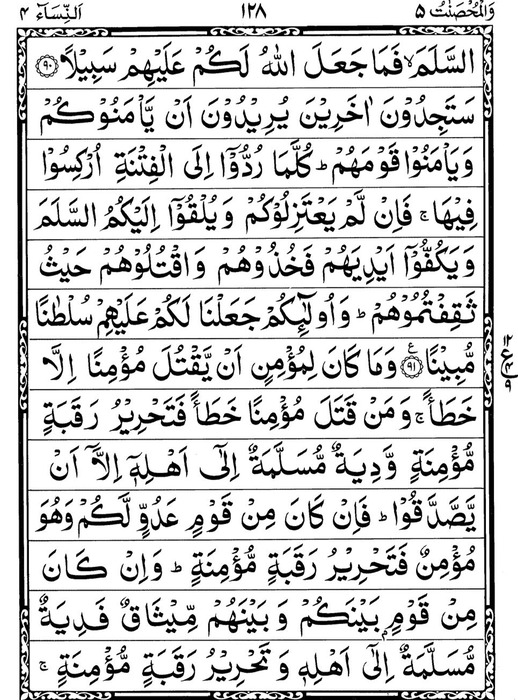 وَالْمُحْصَنٰتُ ٥ ١٢٨ اَلنِّسَآء ٤
السَّلَمَ ۙ فَمَا جَعَلَ اللّٰهُ لَكُمْ عَلَيْهِمْ سَبِيْلًا ﴿٩٠﴾
سَتَجِدُوْنَ اٰخَرِيْنَ يُرِيْدُوْنَ اَنْ يَّاْمَنُوْكُمْ
وَيَاْمَنُوْا قَوْمَهُمْ ؕ كُلَّمَا رُدُّوْۤا اِلَى الْفِتْنَةِ اُرْكِسُوْا
فِيْهَا ۚ فَاِنْ لَّمْ يَعْتَزِلُوْكُمْ وَيُلْقُوْۤا اِلَيْكُمُ السَّلَمَ
وَيَكُفُّوْۤا اَيْدِيَهُمْ فَخُذُوْهُمْ وَاقْتُلُوْهُمْ حَيْثُ
ثَقِفْتُمُوْهُمْ ؕ وَاُولٰٓئِكُمْ جَعَلْنَا لَكُمْ عَلَيْهِمْ سُلْطٰنًا
مُّبِيْنًا ﴿٩١﴾ ع وَمَا كَانَ لِمُؤْمِنٍ اَنْ يَّقْتُلَ مُؤْمِنًا اِلَّا
١٢
ع ٤
٩
خَطَـًٔا ۚ وَمَنْ قَتَلَ مُؤْمِنًا خَطَـًٔا فَتَحْرِيْرُ رَقَبَةٍ
مُّؤْمِنَةٍ وَّدِيَةٌ مُّسَلَّمَةٌ اِلٰٓى اَهْلِهٖۤ اِلَّاۤ اَنْ
يَّصَّدَّقُوْا ؕ فَاِنْ كَانَ مِنْ قَوْمٍ عَدُوٍّ لَّكُمْ وَهُوَ
مُؤْمِنٌ فَتَحْرِيْرُ رَقَبَةٍ مُّؤْمِنَةٍ ؕ وَاِنْ كَانَ
مِنْ قَوْمٍۭ بَيْنَكُمْ وَبَيْنَهُمْ مِّيْثَاقٌ فَدِيَةٌ
مُّسَلَّمَةٌ اِلٰٓى اَهْلِهٖ وَتَحْرِيْرُ رَقَبَةٍ مُّؤْمِنَةٍ ۚ